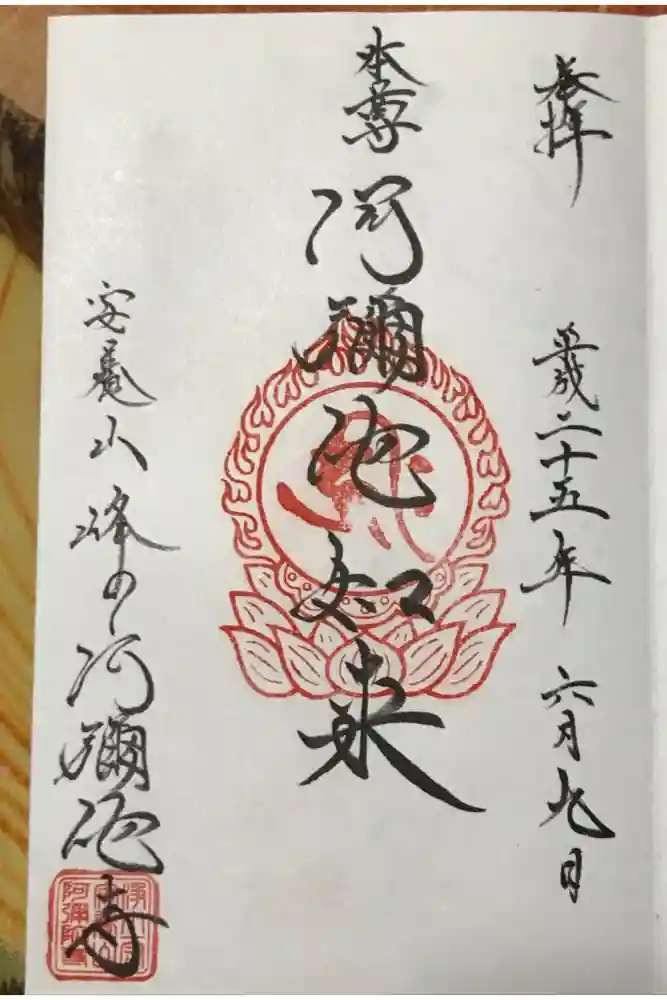 奉拝　平成二十五年　六月九日
本尊　阿彌陀如来
安養山峰の阿彌陀寺